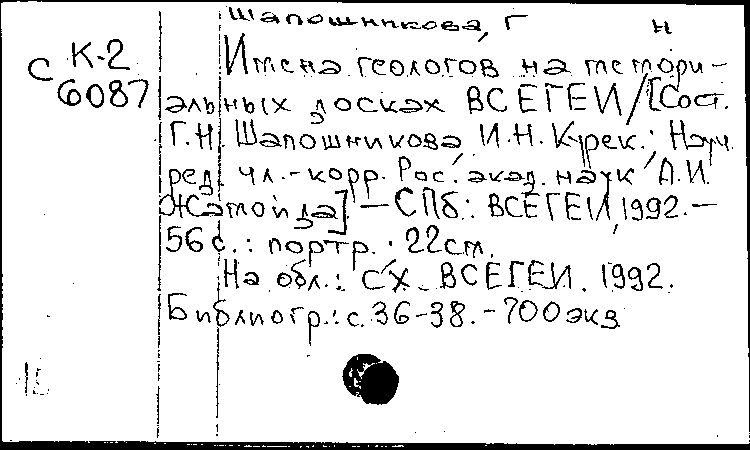 Шапошникова, Г Н
С К-2
6087
Имена геологов на мемори-
альных досках ВСЕГЕИ/[Сост.
Г.Н. Шапошникова, И.Н. Курек.; Науч.
ред. чл.-корр. Рос. акад. наук А.И.
Жамойда]. — СПб.: ВСЕГЕИ, 1992. —
56 с.: портр.; 22 см.
На обл.: С'Х. ВСЕГЕИ. 1992.
Библиогр.: с. 36-38. - 700 экз